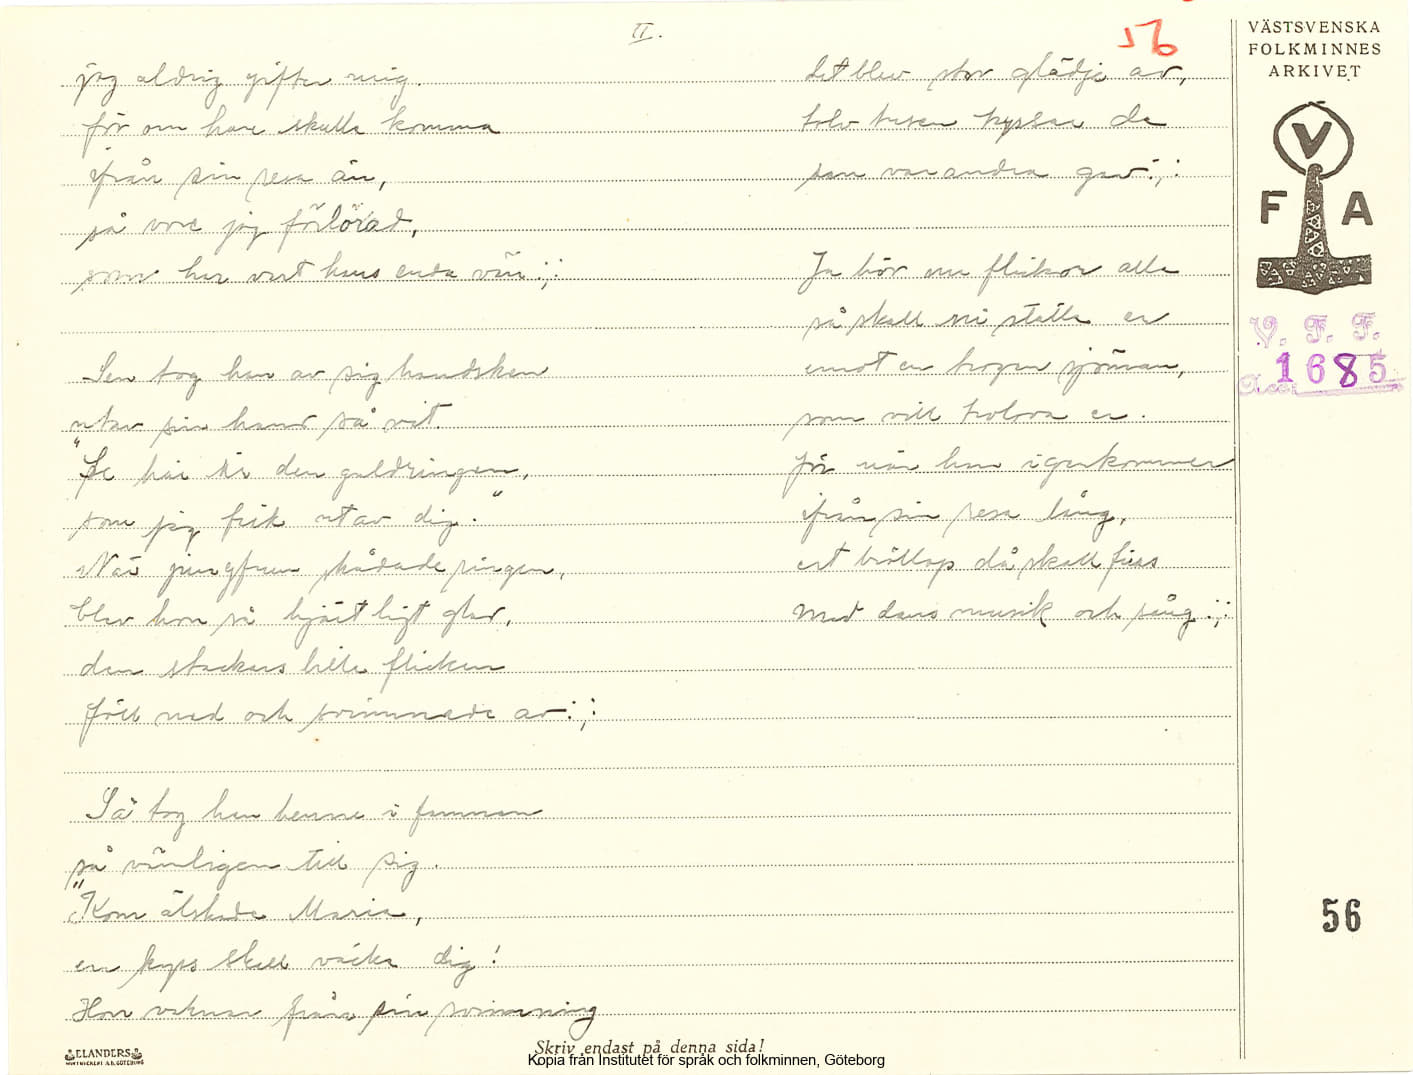 II.
56
jag aldrig gifter mig.
för om han skulle komma
ifrån sin resa än,
så vore jag förlorad,
som har vart hans enda vän :,:
Sen tog han av sig handsken
utav sin hand så vit.
"Se här är den guldringen,
som jag fick utav dig."
När jungfrun skådade ringen,
blev hon så hjärtligt glad,
den stackars lilla flickan
föll ned och svimmade av :,:
Så tog han henne i famnen
så vänligen till sig.
"Kom älskade Maria,
en kyss skall väcka dig!
Hon vaknar från sin svimning
det blev stor glädje av,
tolv tusen kyssar de
som varandra gav :,:
Ja hör nu flickor alla
så skall ni ställa er
emot en trogen sjöman,
som vill trolova er.
för när han igenkommer
ifrån sin resa lång,
ert bröllop då skall firas
med dans musik och sång :,:
VÄSTSVENSKA
FOLKMINNES
ARKIVET
V
F A
V. F. F.
Acc. 1685
56
ELANDERS
BOKTRYCKERI A.B. GÖTEBORG
Skriv endast på denna sida!
Kopia från Institutet för språk och folkminnen, Göteborg